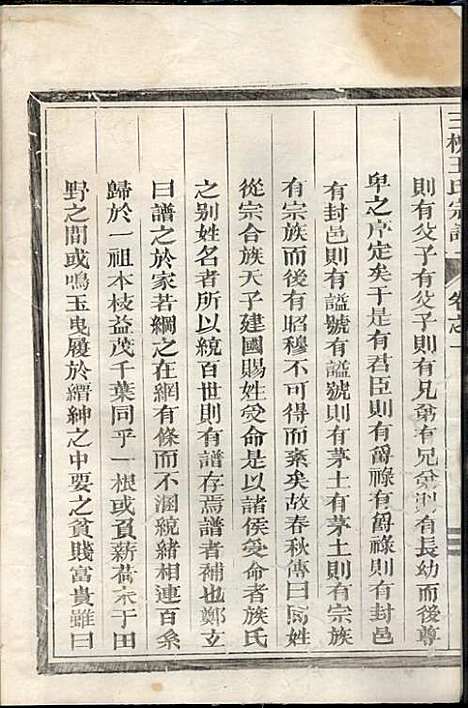 三槐王氏宗譜 卷之一
則有父子有父子則有兄弟有兄弟則有長幼而後尊
卑之序定矣于是有君臣則有爵祿有爵祿則有封邑
有封邑則有謚號有謚號則有茅土有茅土則有宗族
有宗族而後有昭穆不可得而紊矣故春秋傳曰同姓
從宗合族天子建國賜姓受命是以諸侯受命者族氏
之别姓名者所以統百世則有譜存焉譜者補也鄭玄
曰譜之於家若綱之在網有條而不溷統緒相連百系
歸於一祖本枝益茂千葉同乎一根或負薪荷耒于田
野之間或鳴玉曳履於縉紳之中要之貧賤富貴雖曰